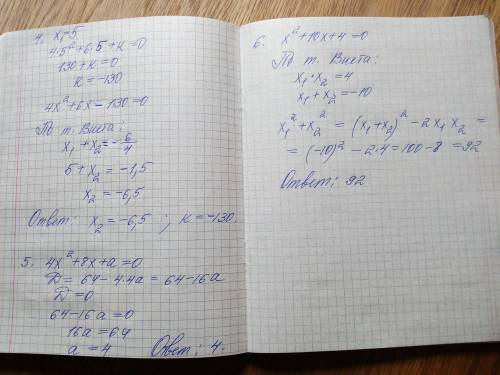 4. x₁=5
4·5²+6·5+к=0
130+к=0
к=-130
4x²+6x-130=0
По т. Виета:
x₁+x₂=-6/4
5+x₂=-1,5
x₂=-6,5
Ответ: x₂=-6,5 ; к=-130.
5. 4x²+8x+a=0
D=64-4·4a=64-16a
D=0
64-16a=0
16a=64
a=4 Ответ: 4.
6. x²+10x+4=0
По т. Виета:
x₁·x₂=4
x₁+x₂=-10
x₁²+x₂²=(x₁+x₂)²-2x₁x₂=
=(-10)²-2·4=100-8=92
Ответ: 92